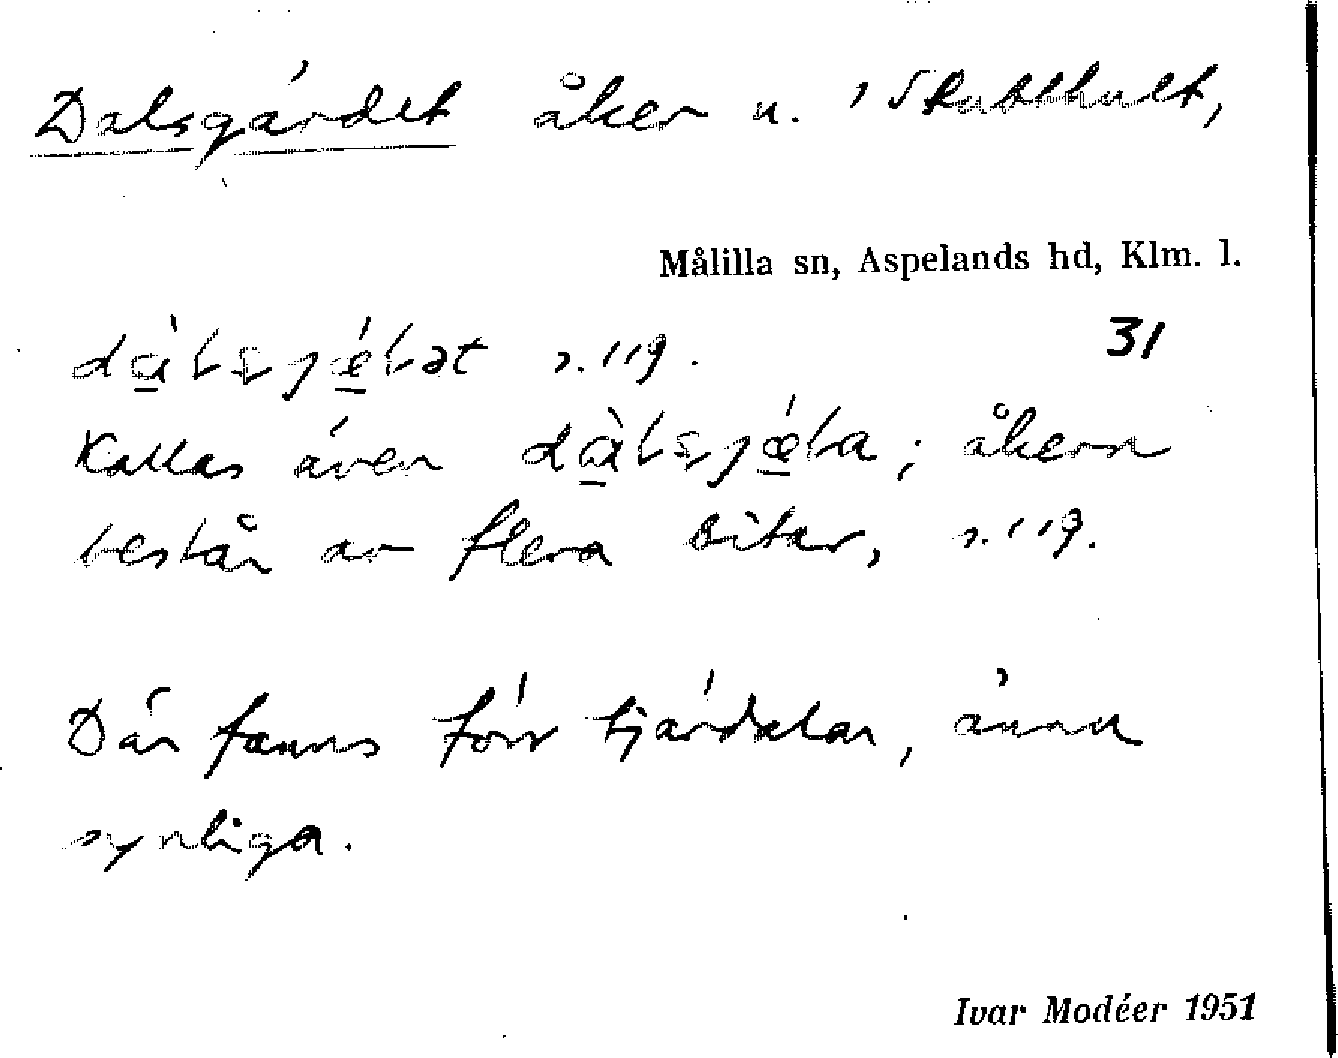 Dalsgärdet åker u. Skutthult,
Målilla sn, Aspelands hd, Klm. l.
31
s. 119.
Kallas även ; åkern
består av flera bitar, s. 119.
Där fanns förr tjärdalar, ännu
synliga.
Ivar Modéer 1951